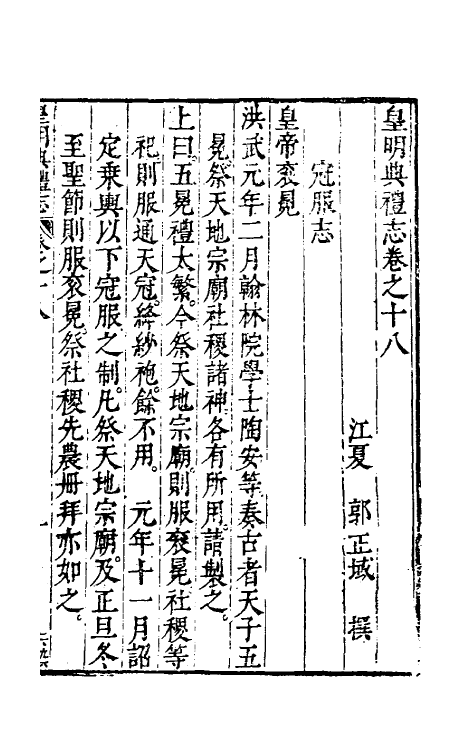 皇明典禮志卷之十八
江夏　郭正域　撰
冠服志
皇帝袞冕
洪武元年二月翰林院學士陶安等奏古者天子五
冕祭天地宗廟社稷諸神各有所用請製之。
上曰。五冕禮太繁。今祭天地宗廟。則服袞冕社稷等
祀。則服通天冠。絳紗袍。餘不用。　元年十一月詔
定乗輿以下冠服之制。凡祭天地宗廟。及正旦冬
至聖節則服衮冕。祭社稷先農冊拜亦如之。
皇明典禮志　卷之十八　一